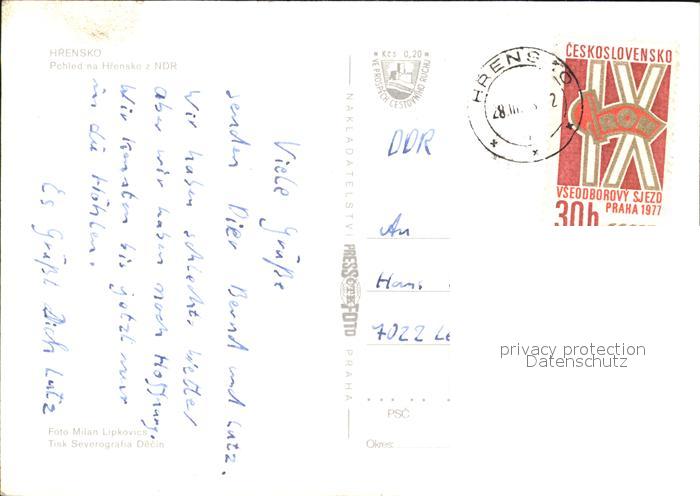 HŘENSKO
Pohled na Hřensko z NDR
Viele Grüße
senden Dier Bernd und Lutz.
Wir haben schlechtes Wetter
aber wir haben noch Hoffnung.
Wir konnten bis jetzt nur
in die Höhlen.
Es Grüßt Dich Lutz
Foto Milan Lipkovics
Tisk Severografia Děčín
Kčs 0,20
VE PROSPĚCH CESTOVNÍHO RUCHU
NAKLADATELSTVÍ PRESSFOTO PRAHA
HŘENSKO
ČESKOSLOVENSKO
IX
ROH
VŠEODBOROVÝ SJEZD
PRAHA 1977
30h
DDR
An
Hans
7022 Le
PSČ
Okres:
privacy protection
Datenschutz